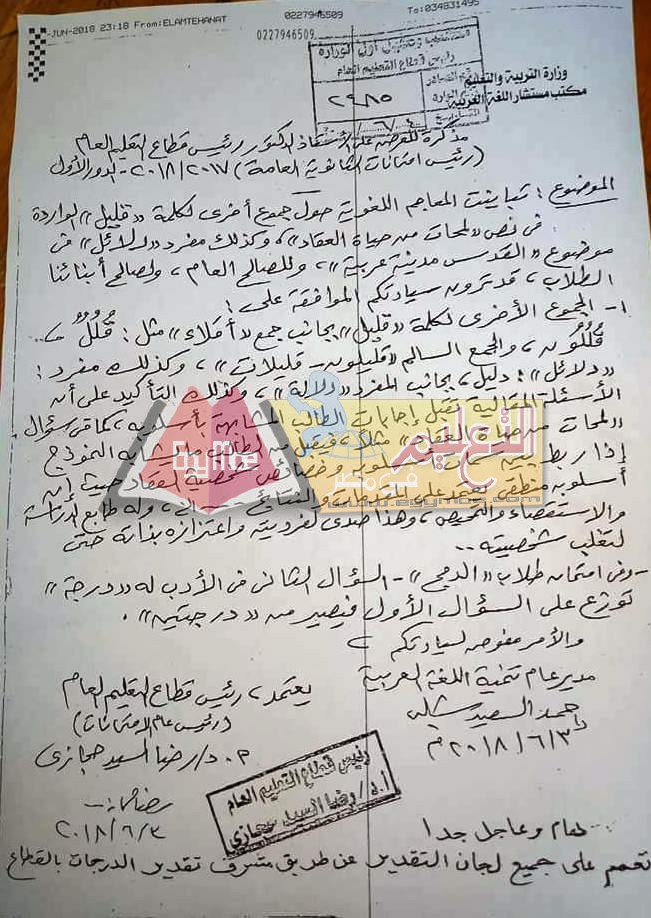 -JUN-2018 23:18 From:ELAMTEHANAT 0227946509 To:034831495
0227946509
وزارة التربية والتعليم
مكتب مستشار اللغة العربية
رئيس قطاع التعليم العام
٢٤٨٥
مذكرة للعرض على الأستاذ الدكتور رئيس قطاع التعليم العام
(رئيس امتحانات الثانوية العامة) ٢٠١٧/٢٠١٨ - الدور الأول
الموضوع: تباينت المعاجم اللغوية حول جموع أخرى لكلمة «قليل» الواردة
فى نص «لمحات من حياة العقاد»، وكذلك مفرد «دلائل» فى
موضوع «القدس مدينة عربية»، وللصالح العام، ولصالح أبنائنا
الطلاب، قد ترون سيادتكم الموافقة على:
١- الجموع الأخرى لكلمة «قليل» بجانب جمع «أقلاء» مثل: قُلُلٌ
قُلُلُون، والجمع السالم «قليلون - قليلات»، وكذلك مفرد:
«دلائل»: دليل، بجانب المفرد «دلالة»، وكذلك التأكيد على أن
الأسئلة المقالية تقبل إجابات الطالب المشابهة بأسلوبه، كما فى سؤال
«لمحات من حياة العقاد» مثلا، فيقبل من الطالب ما يشابه النموذج
إذا ربط بين أسلوبه وخصائص شخصية العقاد حيث إن
أسلوبه منطقى يعتمد على المقدمات والنتائج وله طابع الدراسة
والاستقصاء والتمحيص، وهذا صدى لفرديته واعتزازه بذاته حتى
لتغلب شخصيته..
- وفى امتحان طلاب «الدمج» - السؤال الثانى فى الأدب له «درجة»
توزع على السؤال الأول فيصير من «درجتين».
والأمر مفوض لسيادتكم
مدير عام تنمية اللغة العربية
٢٠١٨/٦/٣م
يعتمد، رئيس قطاع التعليم العام
(رئيس عام الامتحانات)
د/ رضا السيد حجازى
٢٠١٨/٦/٣
رئيس قطاع التعليم العام
أ.د/ رضا السيد حجازى
هام وعاجل جدا
تعمم على جميع لجان التقدير عن طريق مشرف تقدير الدرجات بالقطاع
التعليم
فى مصر
EgyMoe